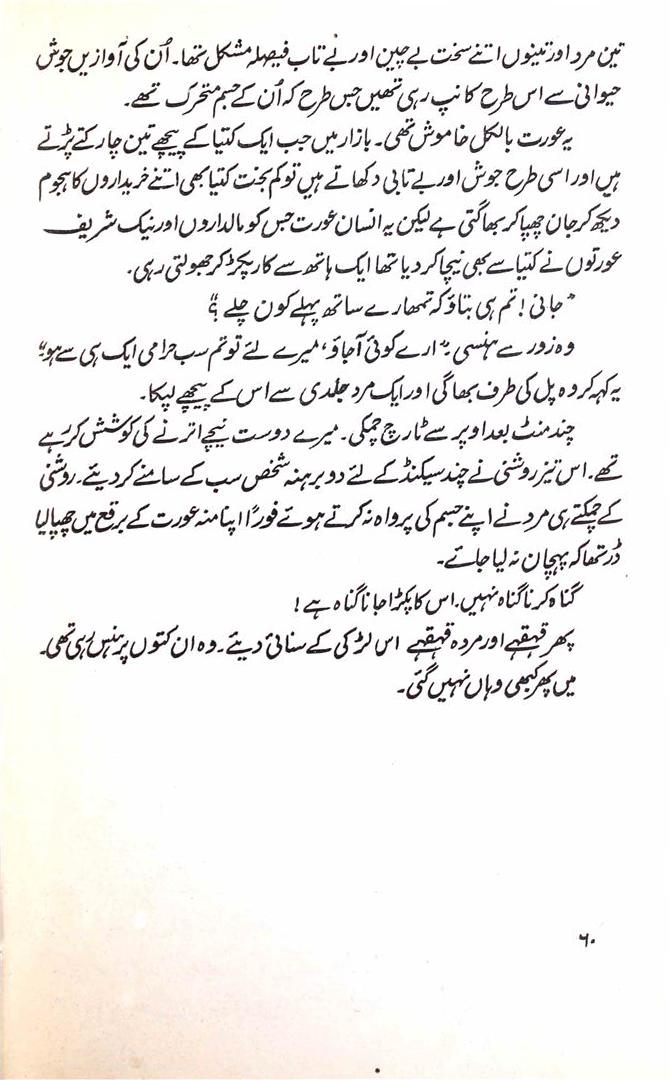 تین مرد اور تینوں اتنے سخت بے چین اور بے تاب فیصلہ مشکل تھا۔ اُن کی آوازیں جوش
حیوانی سے اس طرح کانپ رہی تھیں جس طرح کہ اُن کے جسم متحرک تھے۔
یہ عورت بالکل خاموش تھی۔ بازار میں جب ایک کتیا کے پیچھے تین چار کتے پڑتے
ہیں اور اسی طرح جوش اور بے تابی دکھاتے ہیں تو کم بخت کتیا بھی اتنے خریداروں کا ہجوم
دیکھ کر جان چھپا کر بھاگتی ہے لیکن یہ انسان عورت جس کو مالداروں اور نیک شریف
عورتوں نے کتیا سے بھی نیچا کر دیا تھا ایک ہاتھ سے کار پکڑ کر جھولتی رہی۔
"جانی! تم ہی بتاؤ کہ تمھارے ساتھ پہلے کون چلے؟"
وہ زور سے ہنسی "ارے کوئی آجاؤ، میرے لئے تو تم سب حرامی ایک ہی سے ہو"
یہ کہہ کر وہ پل کی طرف بھاگی اور ایک مرد جلدی سے اس کے پیچھے لپکا۔
چند منٹ بعد اوپر سے ٹارچ چمکی۔ میرے دوست نیچے اترنے کی کوشش کر رہے
تھے۔ اس تیز روشنی نے چند سیکنڈ کے لئے دو برہنہ شخص سب کے سامنے کر دیئے۔ روشنی
کے چمکتے ہی مرد نے اپنے جسم کی پرواہ نہ کرتے ہوئے فوراً اپنا منہ عورت کے برقع میں چھپا لیا
ڈر تھا کہ پہچان نہ لیا جائے۔
گناہ کرنا گناہ نہیں۔ اس کا پکڑا جانا گناہ ہے!
پھر قہقہے اور مردہ قہقہے اس لڑکی کے سنائی دیئے۔ وہ ان کتوں پر ہنس رہی تھی۔
میں پھر کبھی وہاں نہیں گئی۔
۶۰